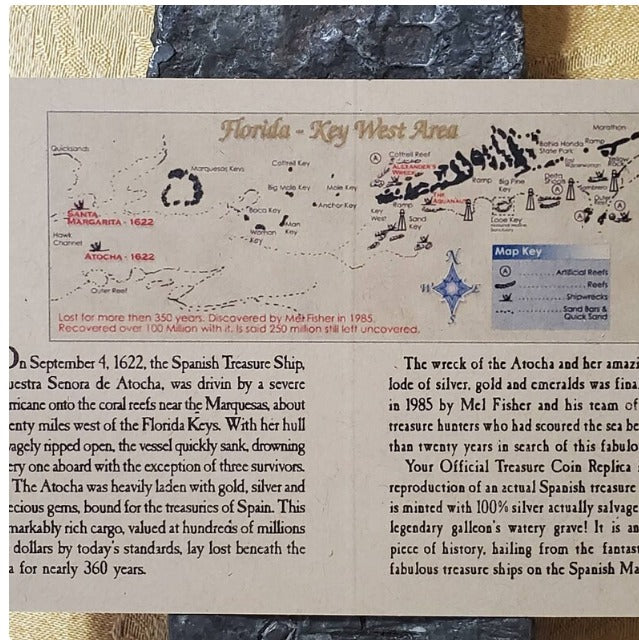 Florida - Key West Area
Quicksands
Marquesas Keys
Cottrell Key
Big Mole Key
Mule Key
Archor Key
Boca Key
Woman Key
Man Key
SANTA
MARGARITA - 1622
Hawk
Channel
ATOCHA - 1622
Outer Reef
Cottrell Reef
ALEXANDER'S
WRECK
THE
AQUANAUT
Ramp
Key
West
Sand
Key
Ramp
Big Pine
Key
Looe Key
Bahia Honda
State Park
Ramp
Marathon
Delta
Shoal
Sombrero
Map Key
A ........ Artificial Reefs
........ Reefs
........ Shipwrecks
........ Sand Bars &
Quick Sand
N
W
E
S
Lost for more then 350 years. Discovered by Mel Fisher in 1985.
Recovered over 100 Million with it. Is said 250 million still left uncovered.
On September 4, 1622, the Spanish Treasure Ship,
uestra Senora de Atocha, was drivin by a severe
rricane onto the coral reefs near the Marquesas, about
enty miles west of the Florida Keys. With her hull
vagely ripped open, the vessel quickly sank, drowning
ery one aboard with the exception of three survivors.
The Atocha was heavily laden with gold, silver and
ecious gems, bound for the treasuries of Spain. This
markably rich cargo, valued at hundreds of millions
dollars by today's standards, lay lost beneath the
a for nearly 360 years.
The wreck of the Atocha and her amazi
lode of silver, gold and emeralds was fina
in 1985 by Mel Fisher and his team of
treasure hunters who had scoured the sea be
than twenty years in search of this fabulo
Your Official Treasure Coin Replica
reproduction of an actual Spanish treasure
is minted with 100% silver actually salvage
legendary galleon's watery grave! It is an
piece of history, hailing from the fantast
fabulous treasure ships on the Spanish Ma